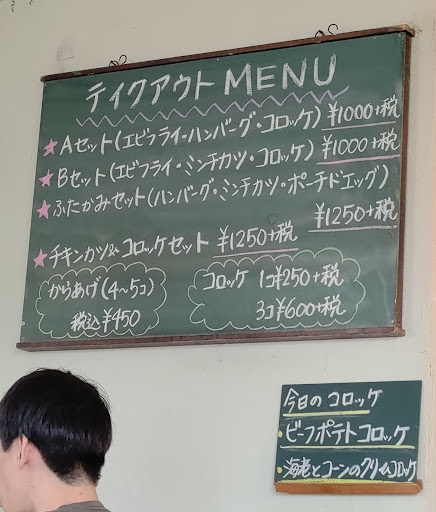 テイクアウトMENU
★Aセット(エビフライ・ハンバーグ・コロッケ) ¥1000+税
★Bセット(エビフライ・ミンチカツ・コロッケ) ¥1000+税
★ふたかみセット(ハンバーグ・ミンチカツ・ポーチドエッグ)
¥1250+税
★チキンカツ&コロッケセット ¥1250+税
からあげ(4〜5コ)
税込¥450
コロッケ 1コ¥250+税
3コ¥600+税
今日のコロッケ
・ビーフポテトコロッケ
・海老とコーンのクリームコロッケ